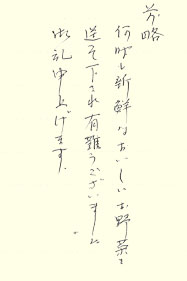 前略
何時も新鮮なおいしいお野菜を
送って下され有難うございました
御礼申上げます。